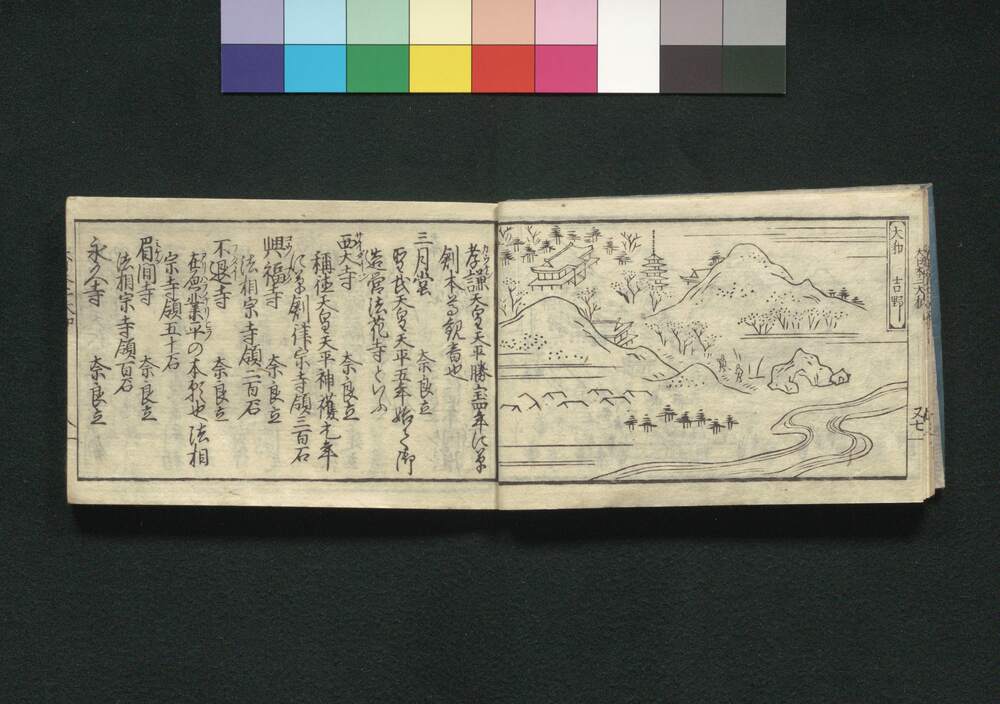 大和 吉野
又七
孝謙天皇天平勝宝四年に草
創本尊観音也
三月堂 奈良立
聖武天皇天平五年始て御
造営法花寺といふ
西大寺 奈良立
称徳天皇天平神護元年
に草創律宗寺領三百石
興福寺 奈良立
法相宗寺領二百石
不退寺 奈良立
在原業平の本願也法相
宗寺領五十石
眉間寺 奈良立
法相宗寺領百石
永久寺 奈良立